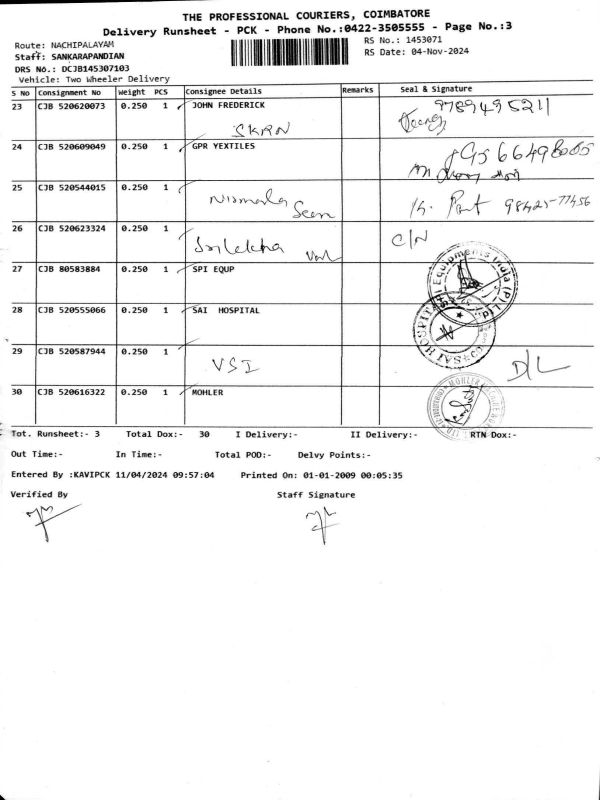 THE PROFESSIONAL COURIERS, COIMBATORE
Delivery Runsheet - PCK - Phone No.:0422-3505555 - Page No.:3
Route: NACHIPALAYAM RS No.: 1453071
Staff: SANKARAPANDIAN RS Date: 04-Nov-2024
DRS No.: DCJB145307103
Vehicle: Two Wheeler Delivery
S No Consignment No Weight PCS Consignee Details Remarks Seal & Signature
23 CJB 520620073 0.250 1 JOHN FREDERICK 9789495211
SKRN
24 CJB 520609049 0.250 1 GPR YEXTILES
25 CJB 520544015 0.250 1
Nirmala 98425-77456
26 CJB 520623324 0.250 1 C/N
Srilekha
27 CJB 80583884 0.250 1 SPI EQUP
Equipments India (P) Ltd.
28 CJB 520555066 0.250 1 SAI HOSPITAL
SAI HOSPITAL
29 CJB 520587944 0.250 1
VSI D/L
30 CJB 520616322 0.250 1 MOHLER
Tot. Runsheet:- 3 Total Dox:- 30 I Delivery:- II Delivery:- RTN Dox:-
Out Time:- In Time:- Total POD:- Delvy Points:-
Entered By :KAVIPCK 11/04/2024 09:57:04 Printed On: 01-01-2009 00:05:35
Verified By Staff Signature